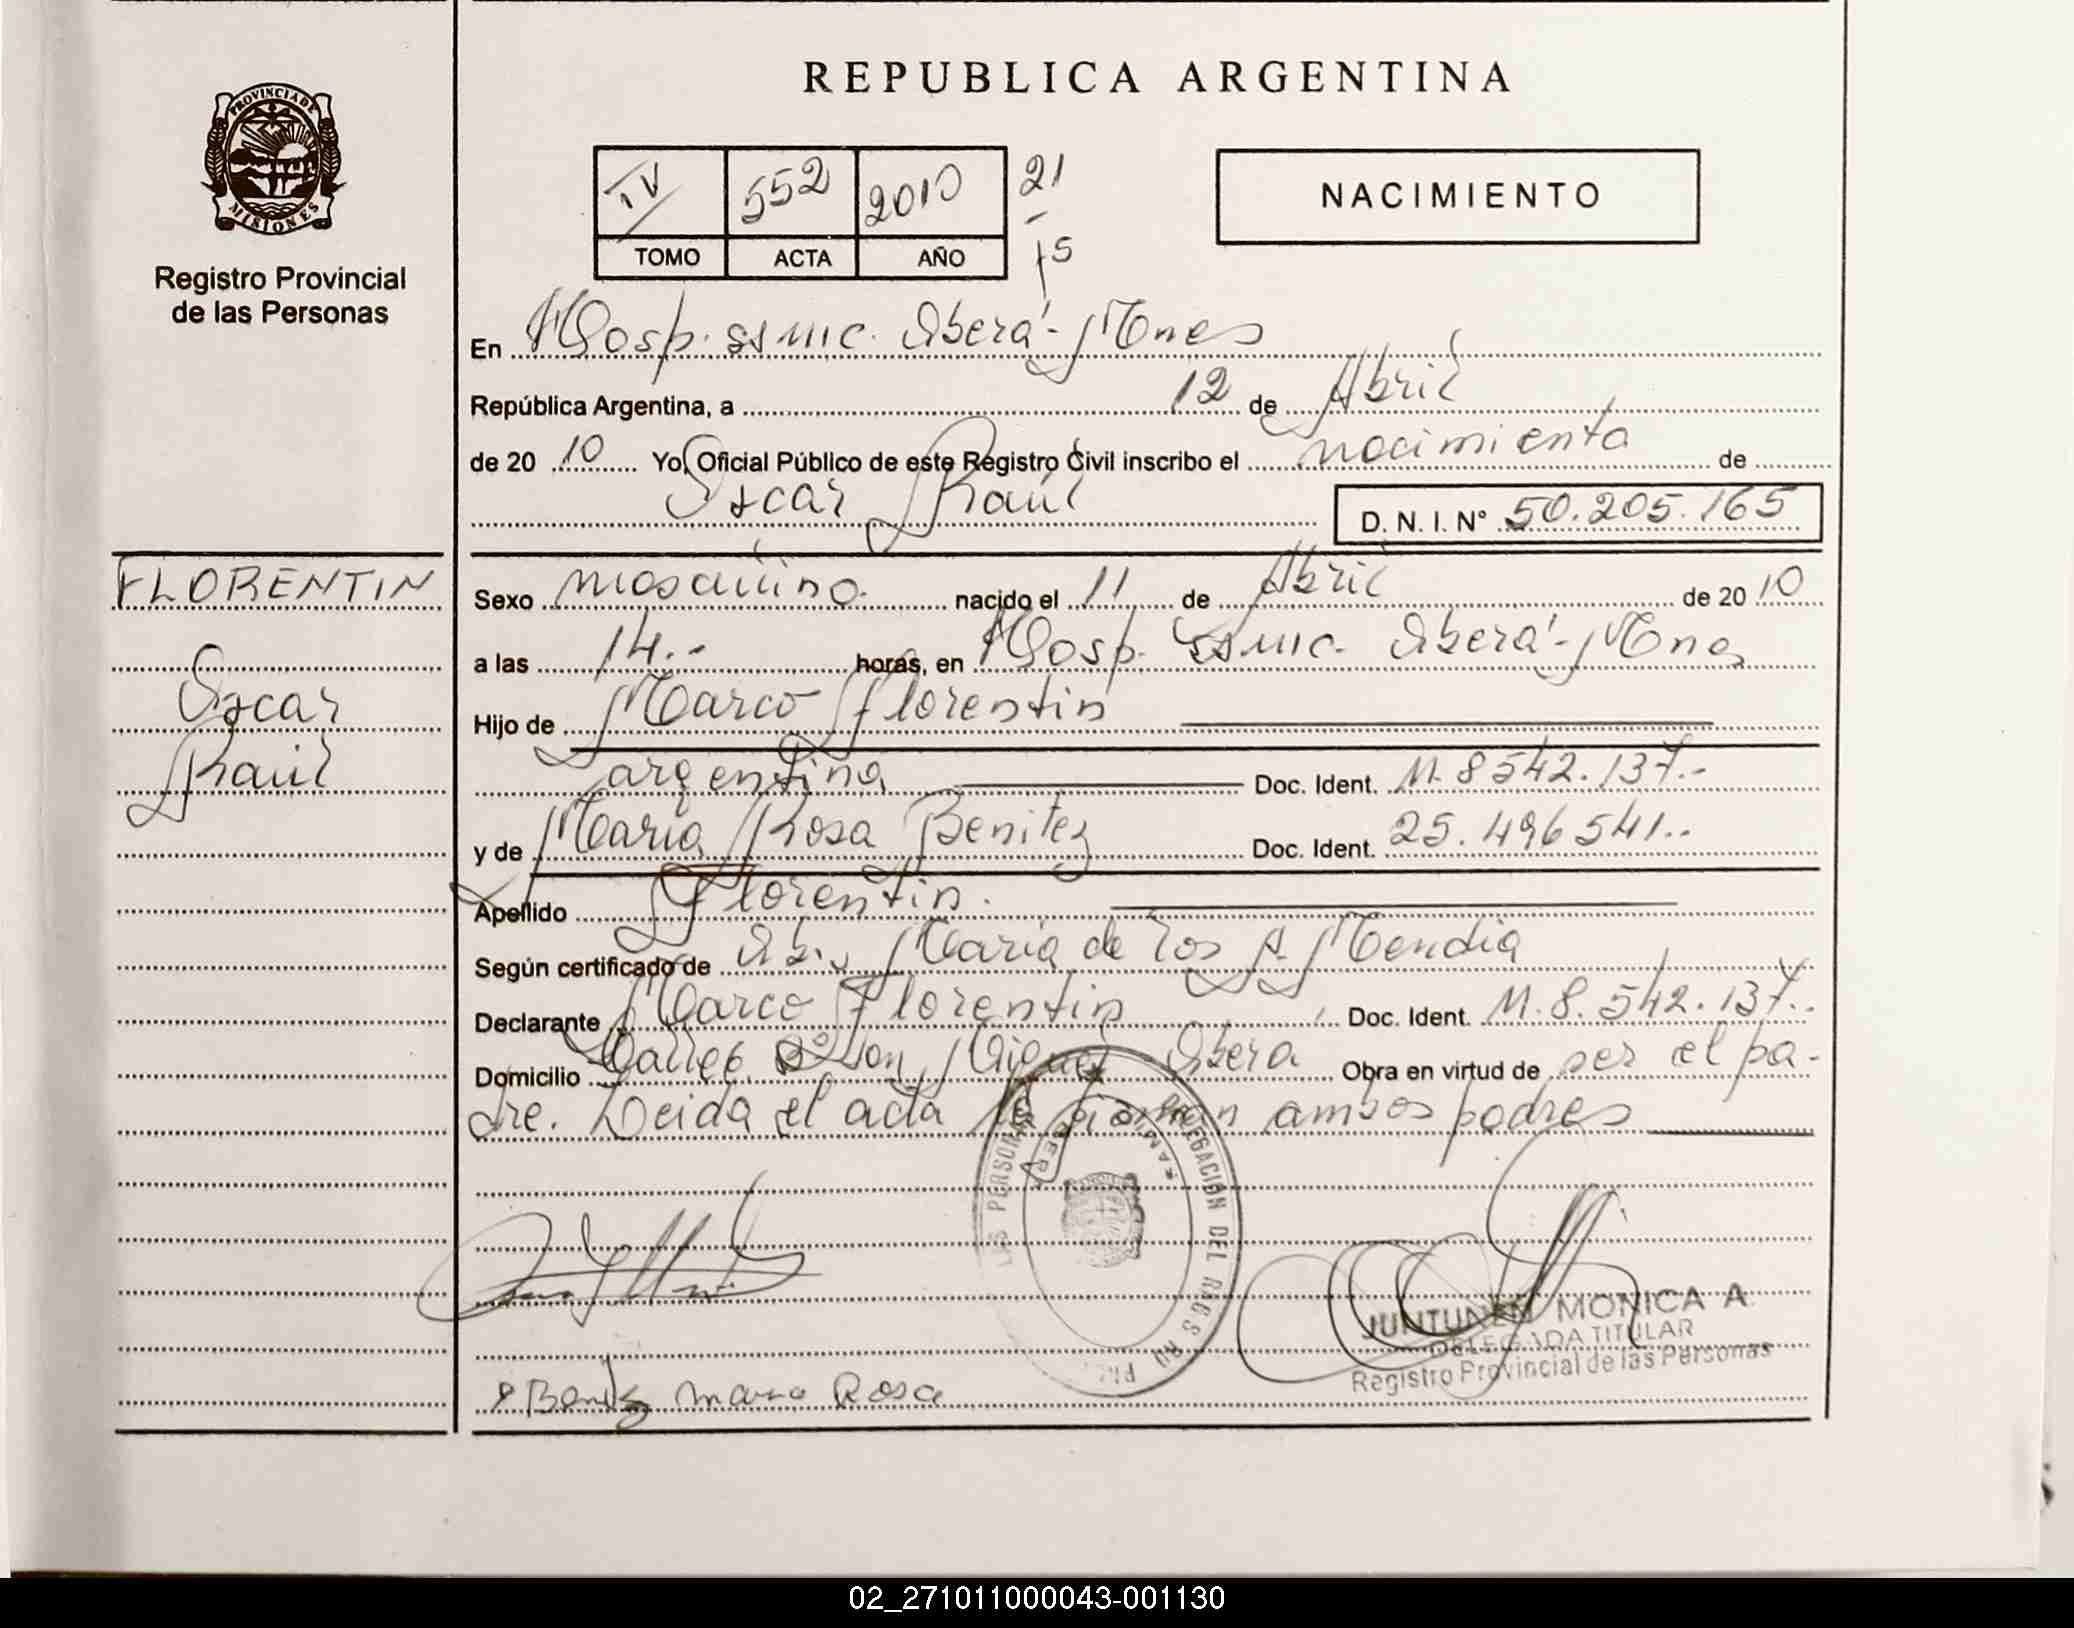 PROVINCIA DE
MISIONES
Registro Provincial
de las Personas
REPUBLICA ARGENTINA
IV 552 2010 21
TOMO ACTA AÑO 15
NACIMIENTO
En Hosp. ssmic. Oberá - Mnes
República Argentina, a 12 de Abril
de 20 10 Yo, Oficial Público de este Registro Civil inscribo el nacimiento de
Oscar Raúl D. N. I. N° 50.205.165
FLORENTIN
Oscar
Raúl
Sexo masculino nacido el 11 de Abril de 20 10
a las 14.- horas, en Hosp. ssmic. Oberá - Mnes
Hijo de Marco Florentin
argentina Doc. Ident. M. 8542.137.-
y de María Rosa Benitez Doc. Ident. 25.496541.-
Apellido Florentin.
Según certificado de Ob. María de los A. Mendia
Declarante Marco Florentin Doc. Ident. M. 8.542.137.-
Domicilio San Miguel Oberá Obra en virtud de ser el pa-
dre. Leida el acta la firman ambos padres
LAS PERSONAS
DELEGACION DEL
JUNTUNEN MONICA A
DELEGADA TITULAR
Registro Provincial de las Personas
Benitez Maria Rosa
02_271011000043-001130